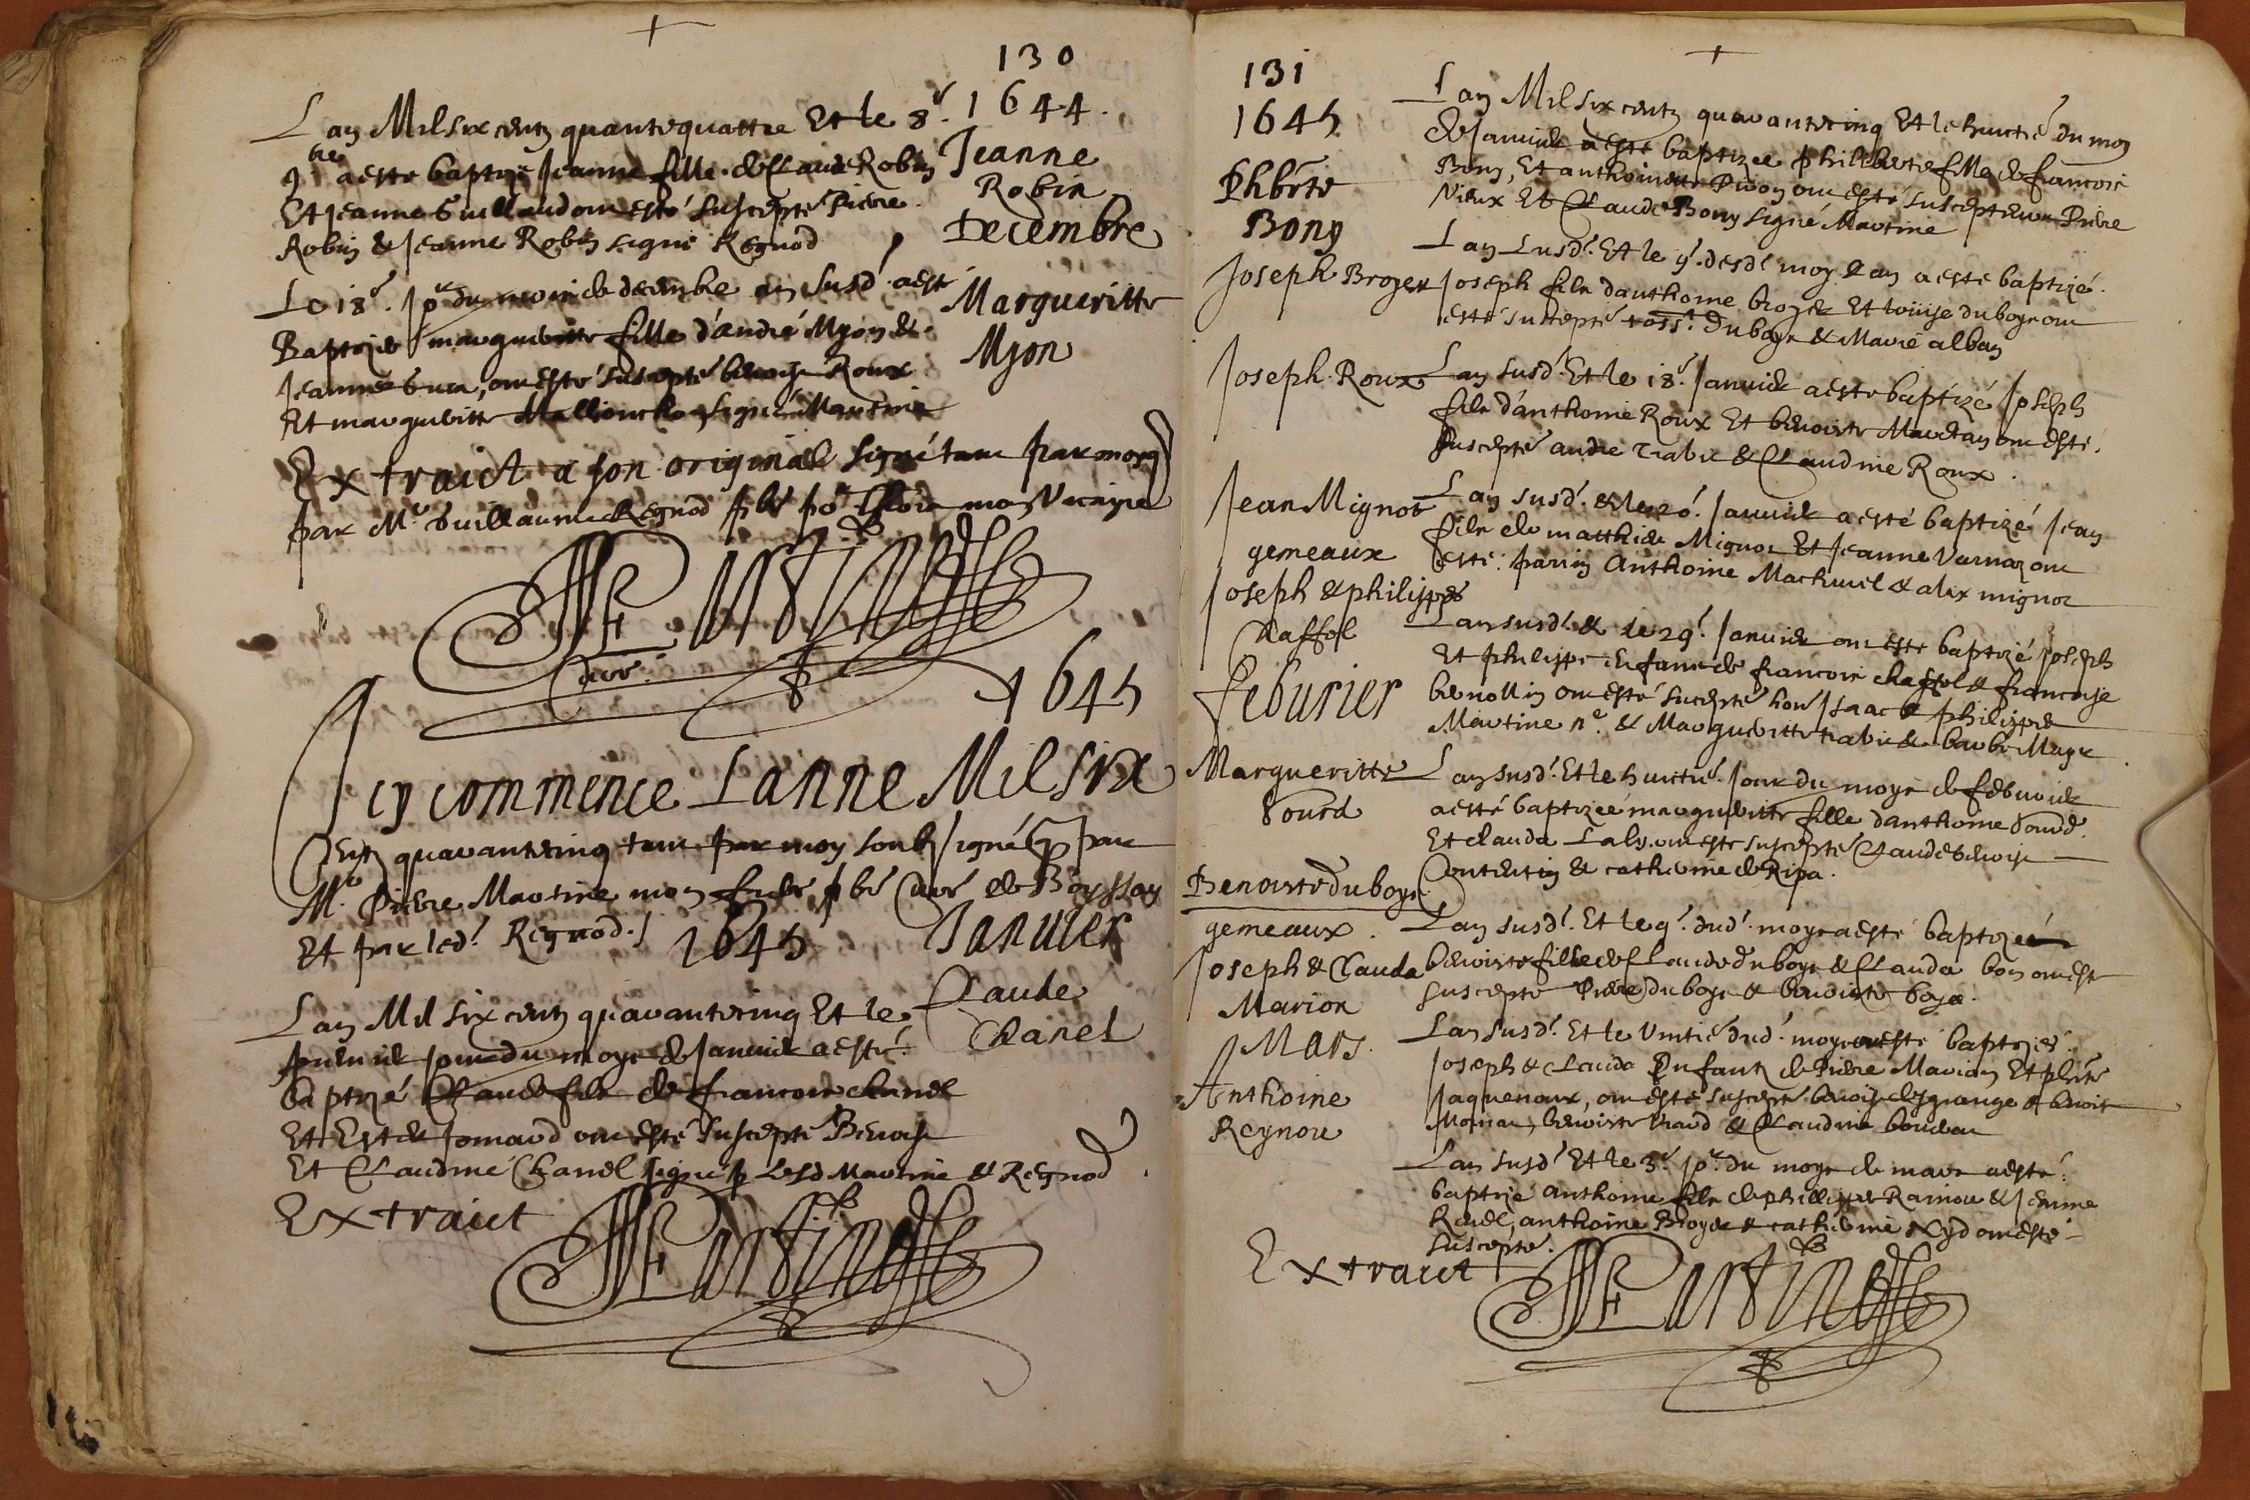 130
1644.
Lan Mil six centz quante quattre Et le 8e.
9bre a este baptizé Jeanne fille de Claude Robin
Et Jeanne Guillaud ont esté suscepté Pierre
Robin & Jeanne Robin signé Regnod
Jeanne
Robin
Decembre
Le 18e. Jr du mois de decembre an susd. a esté
Baptizée margueritte fille d'andré Myon &
Jeanne, ont esté suscepté benoist Roux
Et margueritte signé Martine
Margueritte
Myon
Extraict a son original signé tant par moy q
par Mre Guillaume Regnod pbre mon Vicaire
Martine
Curé
1645
Icy commence Lanne Mil Six
Centz quarante cinq tant par moy soubsigné q par
Mre Pierre Martine mon frere pbre Curé de Boyssay
Et par led. Regnod./
1645 Janvier
Lan Mil six centz quarante cinq Et le
premier jour du moys de Janvier a esté
baptizé Claude filz de francois chanel
Et Jomard ont esté suscepté Benoist
Et Claudine Chanel signé p lesd Martine & Regnod
Claude
Chanel
Extraict
Martine
131
1645
Phbrte
Bony
Lan Mil six centz quarante cinq Et le huictie du moy
de Janvier a esté baptizee philiberte fille de francois
Bony, Et anthoinette Pivon ont esté suscepteur Pierre
Vieux Et Claude Bony signé Martine
Joseph Broyer
Lan Lusd. Et le 9. desd moy & an a este baptizé
Joseph filz danthoine broyer Et louise duboys ont
esté suscepté toss.t Duboys & Marie alban
Joseph Roux
Lan susd. Et le 18. Janvier a este baptizé Joseph
filz d'anthoine Roux Et benoiste ont esté
suscepté andre Trabie & Claudine Roux
Jean Mignot
Lan susd. & le 20. Janvier a esté baptizé Jean
filz de matthieu Mignot Et Jeanne Varnaz ont
esté parrin Anthoine & alix mignot
gemeaux
Joseph & philippes
Chaffol
Lan susd. & le 29. Janvier ont este baptizé Joseph
Et philippe enfans de francois chaffol & francoise
benollin ont esté suscepté hon. Isaac & philippes
Martine nre. & Margueritte trabie & barbe
Feburier
Margueritte
Gourd
Lan susd. Et le huictie. Jour du moys de febvrier
a esté baptizee marguerittte fille danthoine Gourd
Et clauda Laly ont este suscepté Claude benoist
& catherine de Ripa.
Benoiste duboys
Lan susd. Et le 9. dud. moys a esté baptizeé
benoiste fille de Claude duboys & Clauda bon ont este
suscepté Pierre Duboys & benoiste boyé.
gemeaux
Joseph & Clauda
Marion
Lan susd. Et le Vintie dud. moys ont esté baptizés
Joseph & Clauda Enfantz de Pierre Marion Et phrte
Jaquenoux, ont esté suscepté benoist desgrange & benoit
Moiriat, benoiste & Claudine
Mars
Anthoine
Reynou
Lan susd. Et le 3e. Jr. du moys de mars a esté
baptizé anthoine filz de phillippes Rainou & Jeanne
anthoine Broyer & catherine ont esté
suscepté.
Extraict
Martine